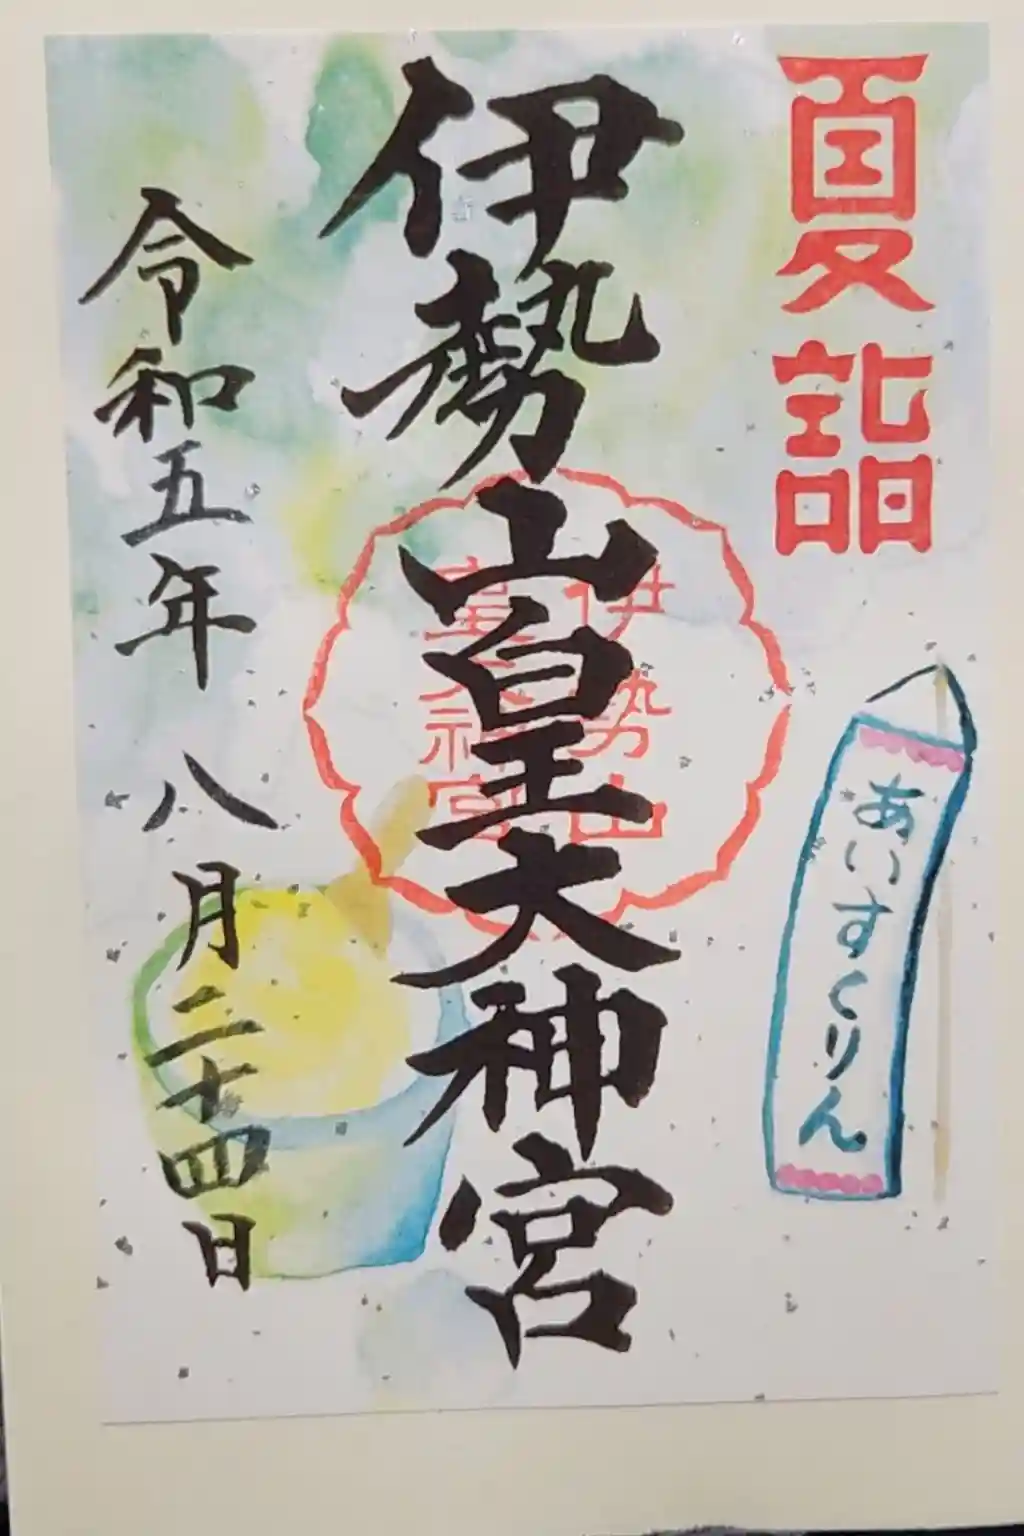 夏詣
あいすくりん
伊勢山皇大神宮
伊勢山
皇大神宮
令和五年 八月二十四日